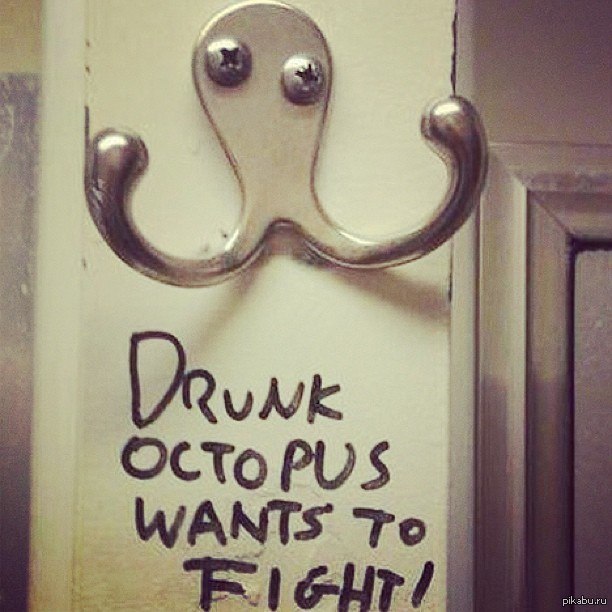 DRUNK
OCTOPUS
WANTS TO
FIGHT!
pikabu.ru